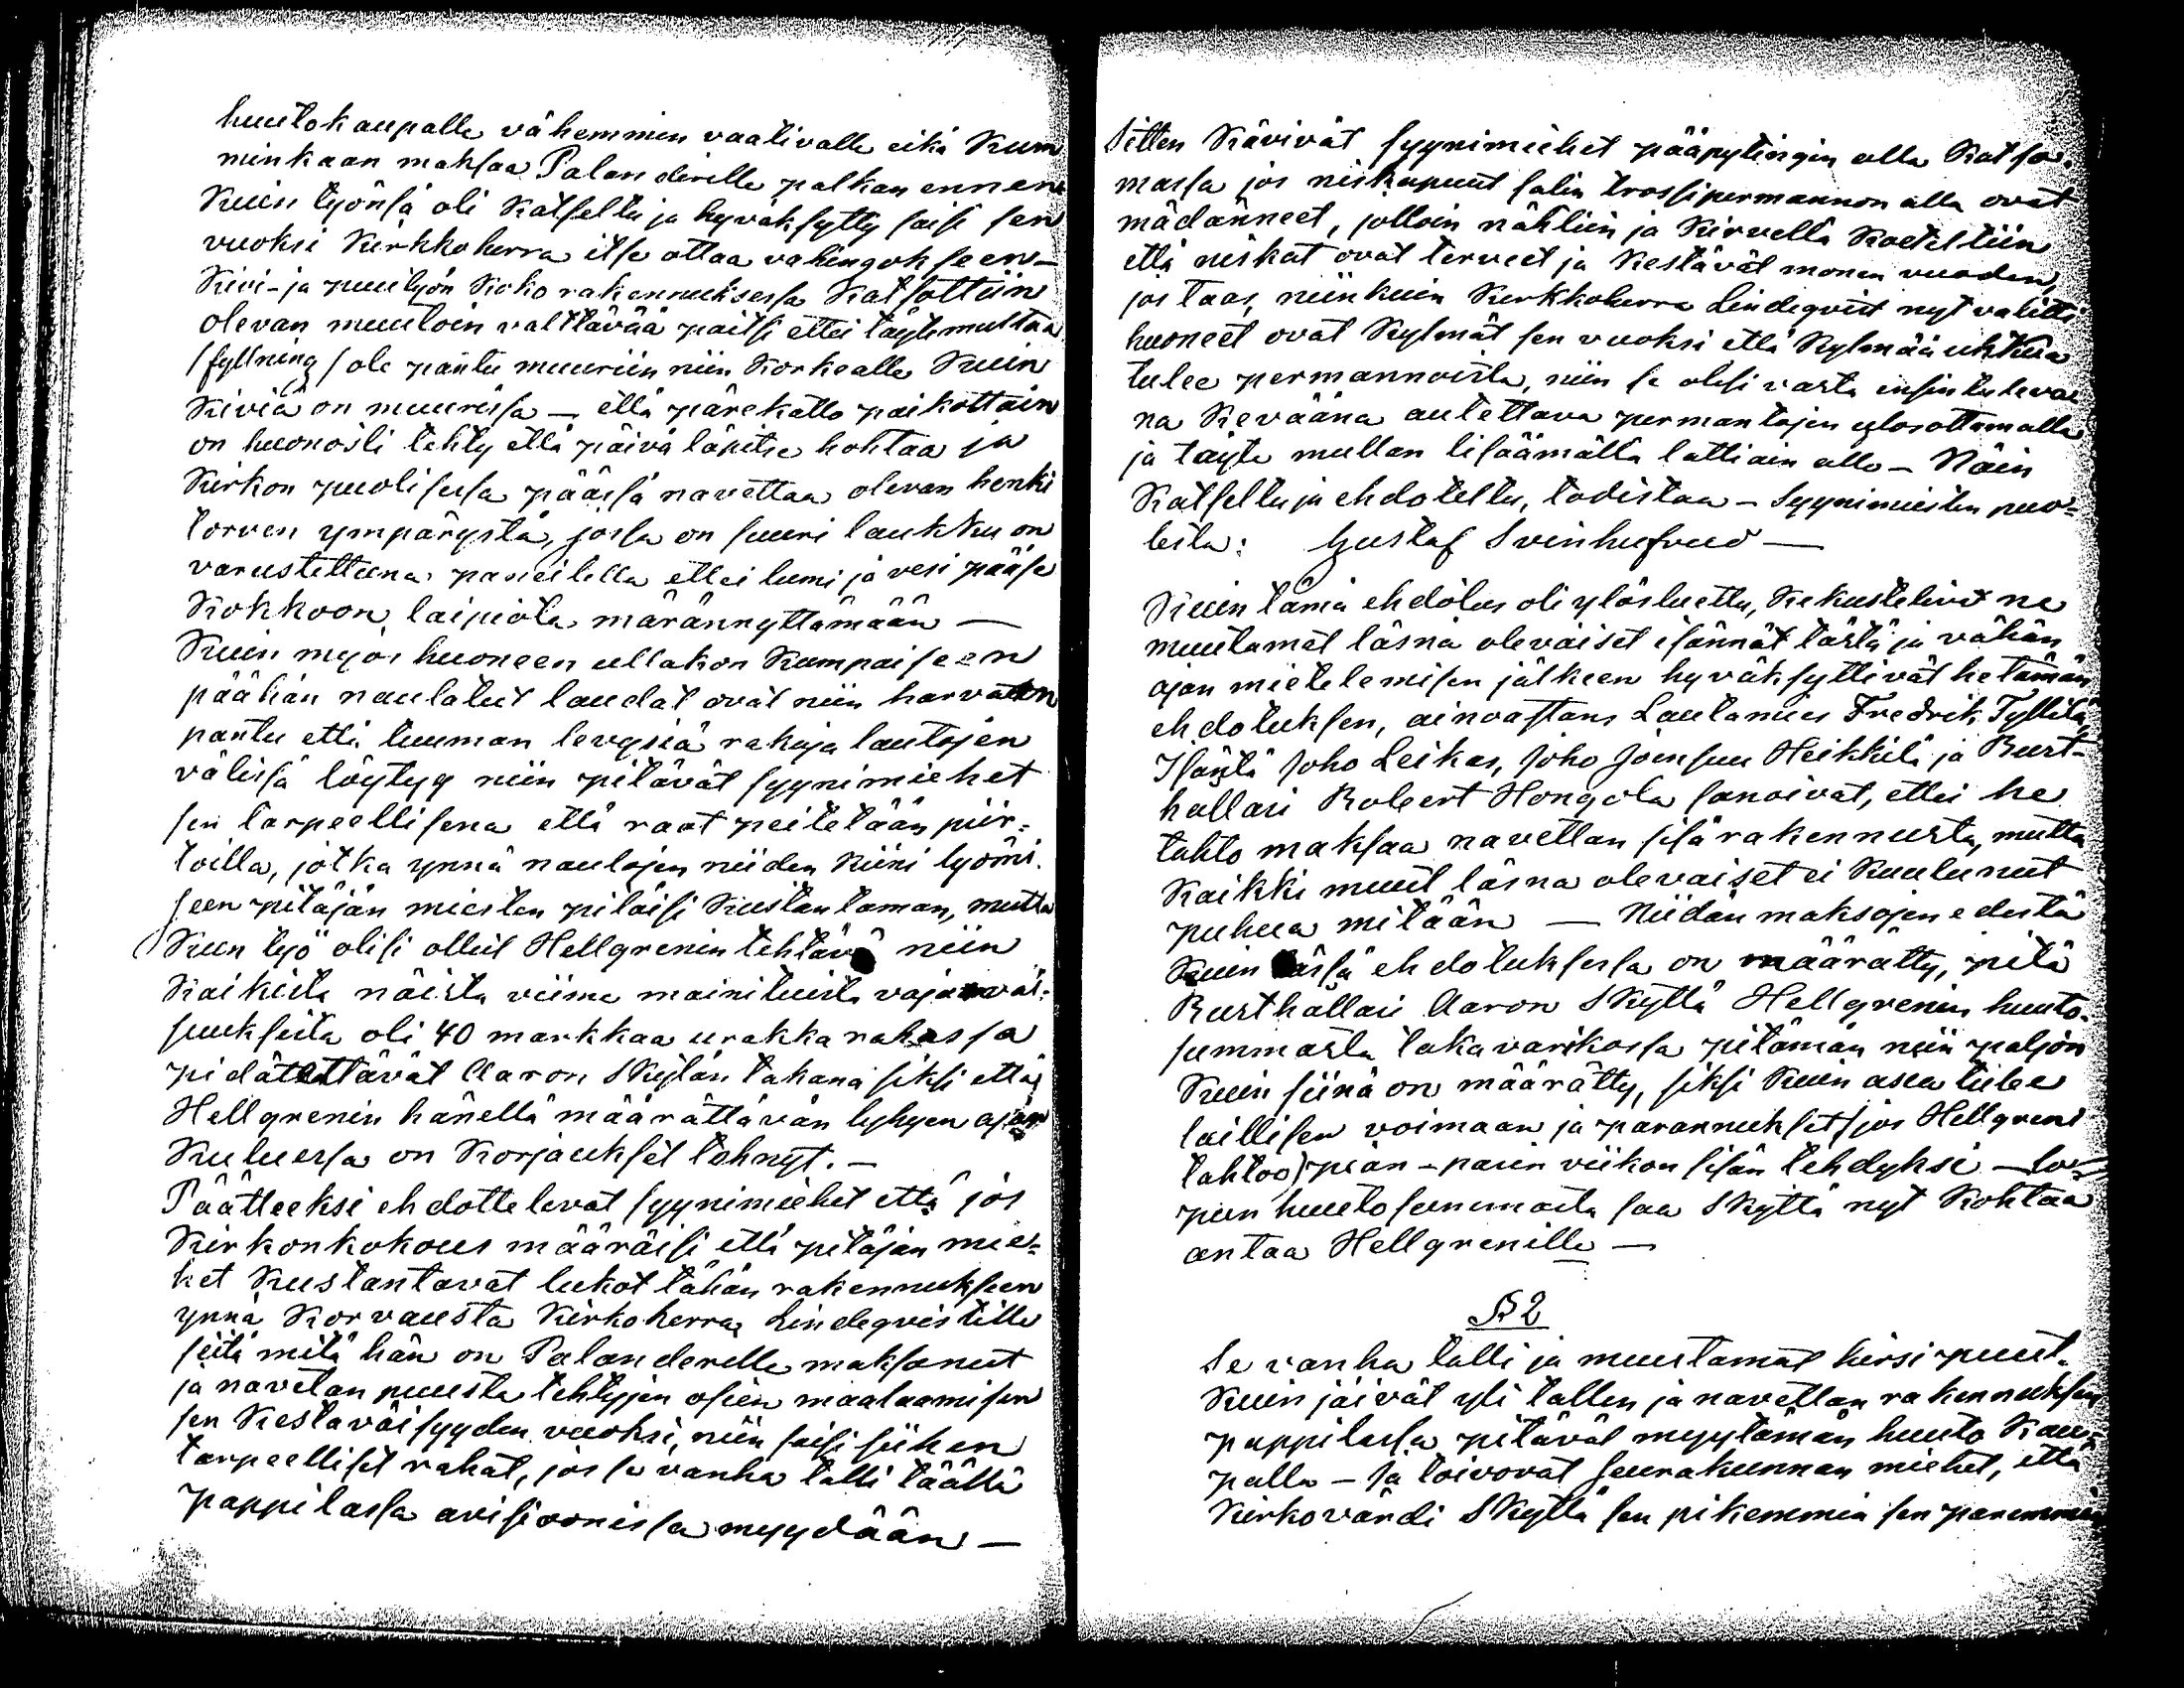 huutokaupalla vähemmin vaativalle eikä Kum
minkaan maksaa Palanderille palkan ennen
Kuin työnsä oli Katseltu ja hyväksytty saisi sen
vuoksi Kirkkoherra itse ottaa vahingokseen —
Kivi- ja puutyön Koko rakennuksessa Katsottiin
olevan muutoin valttävää paitsi ettei täytemultaa
(fyllning) ole pantu muuriin niin Korkealle Kuin
Kiviä on muurissa — että pärekatto paikottain
on huonosti tehty että päivä läpitse hohtaa ja
Kirkon puolisessa päässä navettaa olevan henki
torven ympärystä, jossa on suuri laukku on
varustettuna paneilella ettei lumi ja vesi pääse
Kokkoon laipiota märännyttämään —
Kuin myös huoneen ullakon Kumpaiseen
päähän naulatut laudat ovat niin harvaten
pantu että tuuman levysiä rakoja lautojen
välissä löytyy niin pitävät syynimiehet
sen tarpeellisena että raot peitetään piir-
toilla, jotka ynnä naulojen niiden Kiini lyömi-
seen pitäjän miesten pitäisi Kustantaman, mutta
Kuin työ olisi ollut Hellgrenin tehtävä niin
Kaikista näistä viime mainituista vajavai-
suuksista oli 40 markkaa urakka rahassa
pidätettävät Aaron Skytän takana siksi että
Hellgrenin hänellä määrättävän lyhyen ajan
Kuluessa on Korjaukset tehnyt. —
Päätteeksi ehdottelevat syynimiehet että jos
Kirkonkokous määräisi että pitäjän mie-
het Kustantavat lukot tähän rakennukseen
ynnä Korvausta Kirkoherra Lindeqvistille
siitä mitä hän on Palanderille maksanut
ja navetan puusta tehtyjen osien maalaamisen
sen Kestäväisyyden vuoksi, niin saisi siihen
tarpeelliset rahat, jos se vanha talli täällä
pappilassa avisioonissa myydään —
Sitten Kävivät syynimiehet pääpytingin alla Katso-
massa jos niskapuut salin trossipermannon alla ovat
mädänneet, jolloin nähtiin ja Kirvellä Koeteltiin
että niskat ovat terveet ja Kestävät monen vuoden,
jos taas, niinkuin Kirkkoherra Lindeqvist nyt valitti
huoneet ovat Kylmät sen vuoksi että Kylmää uhkua
tulee permannoista, niin se olisi vasta ensin tuleva
na Kevääna autettava permantojen ylosottamalla
ja täyte mullan lisäämällä lattiain alle — Näin
Katseltu ja ehdoteltu, todistaa — Syynimiesten puo-
lesta: Gustaf Svinhufvud —
Kuin tämä ehdotus oli ylösluettu, Keskustelivat ne
muutamat läsnä olevaiset isännät tästä ja vähän
ajan mietelemisen jälkeen hyväksyttivät he tämän
ehdotuksen, ainoastans Lautamies Fredrik Tyllilä,
Isäntä Joho Leikas, Joho Joensuu Heikkilä ja Rust-
hallari Robert Hongola sanoivat, ettei he
tahto maksaa navettan sisärakennusta, mutta
Kaikki muut läsna olevaiset ei Kuulunut
puhua mitään — Niidän maksojen edestä
Kuin tässä ehdotuksessa on määrätty, pitä
Rusthällari Aaron Skyttä Hellgrenin huuto-
summasta takavarikossa pitämän niin paljon
Kuin siinä on määrätty, siksi Kuin asia tulee
laillisen voimaan ja parannukset (jos Hellgreni
tahtoo) pian — parin viikon sisän tehdyksi — Lo-
pun huuto summasta saa Skyttä nyt Kohtaa
antaa Hellgrenille —
§ 2
Se vanha talli ja muutamat hirsi puut
Kuin jäivät yli tallin ja navettan rakennuksen
pappilassa pitävät myytämän huuto Kau-
palla — Ja toivovat seurakunnan miehet, että
Kirkovärdi Skyttä sen pikemmin sen paremmin